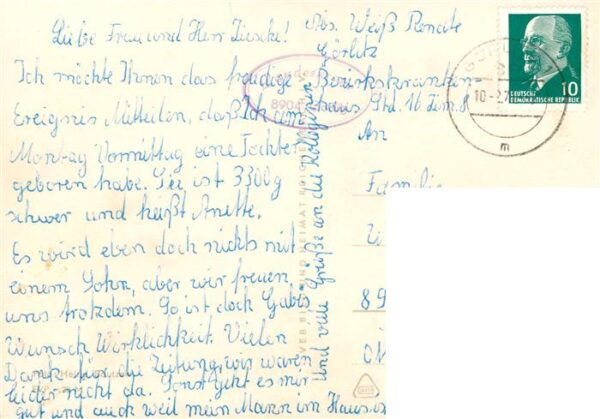 Liebe Frau und Herr Zieseke!
Ich möchte Ihnen das freudige
Ereignes Mitteilen, daß Ich am
Montag Vormittag eine Tochter
geboren habe. Sie ist 3300g
schwer und heißt Anette.
Es wird eben doch nichts mit
einem Sohn, aber wir freuen
uns trotzdem. So ist doch Gabis
Wunsch Wirklichkeit. Vielen
Dank für die Zeitung, wir waren
leider nicht da. Sonst geht es mir
gut und auch weil mein Mann im Haus is
und viele Grüße an die Kolleginnen
Abs. Weiß Renate
Görlitz
Bezirkskranken-
haus Sta. 16 Zim. 8
An
Familie
89
DEUTSCHE
DEMOKRATISCHE REPUBLIK
10
10.-2.
m
8904
VEB BILD UND HEIMAT REICHE